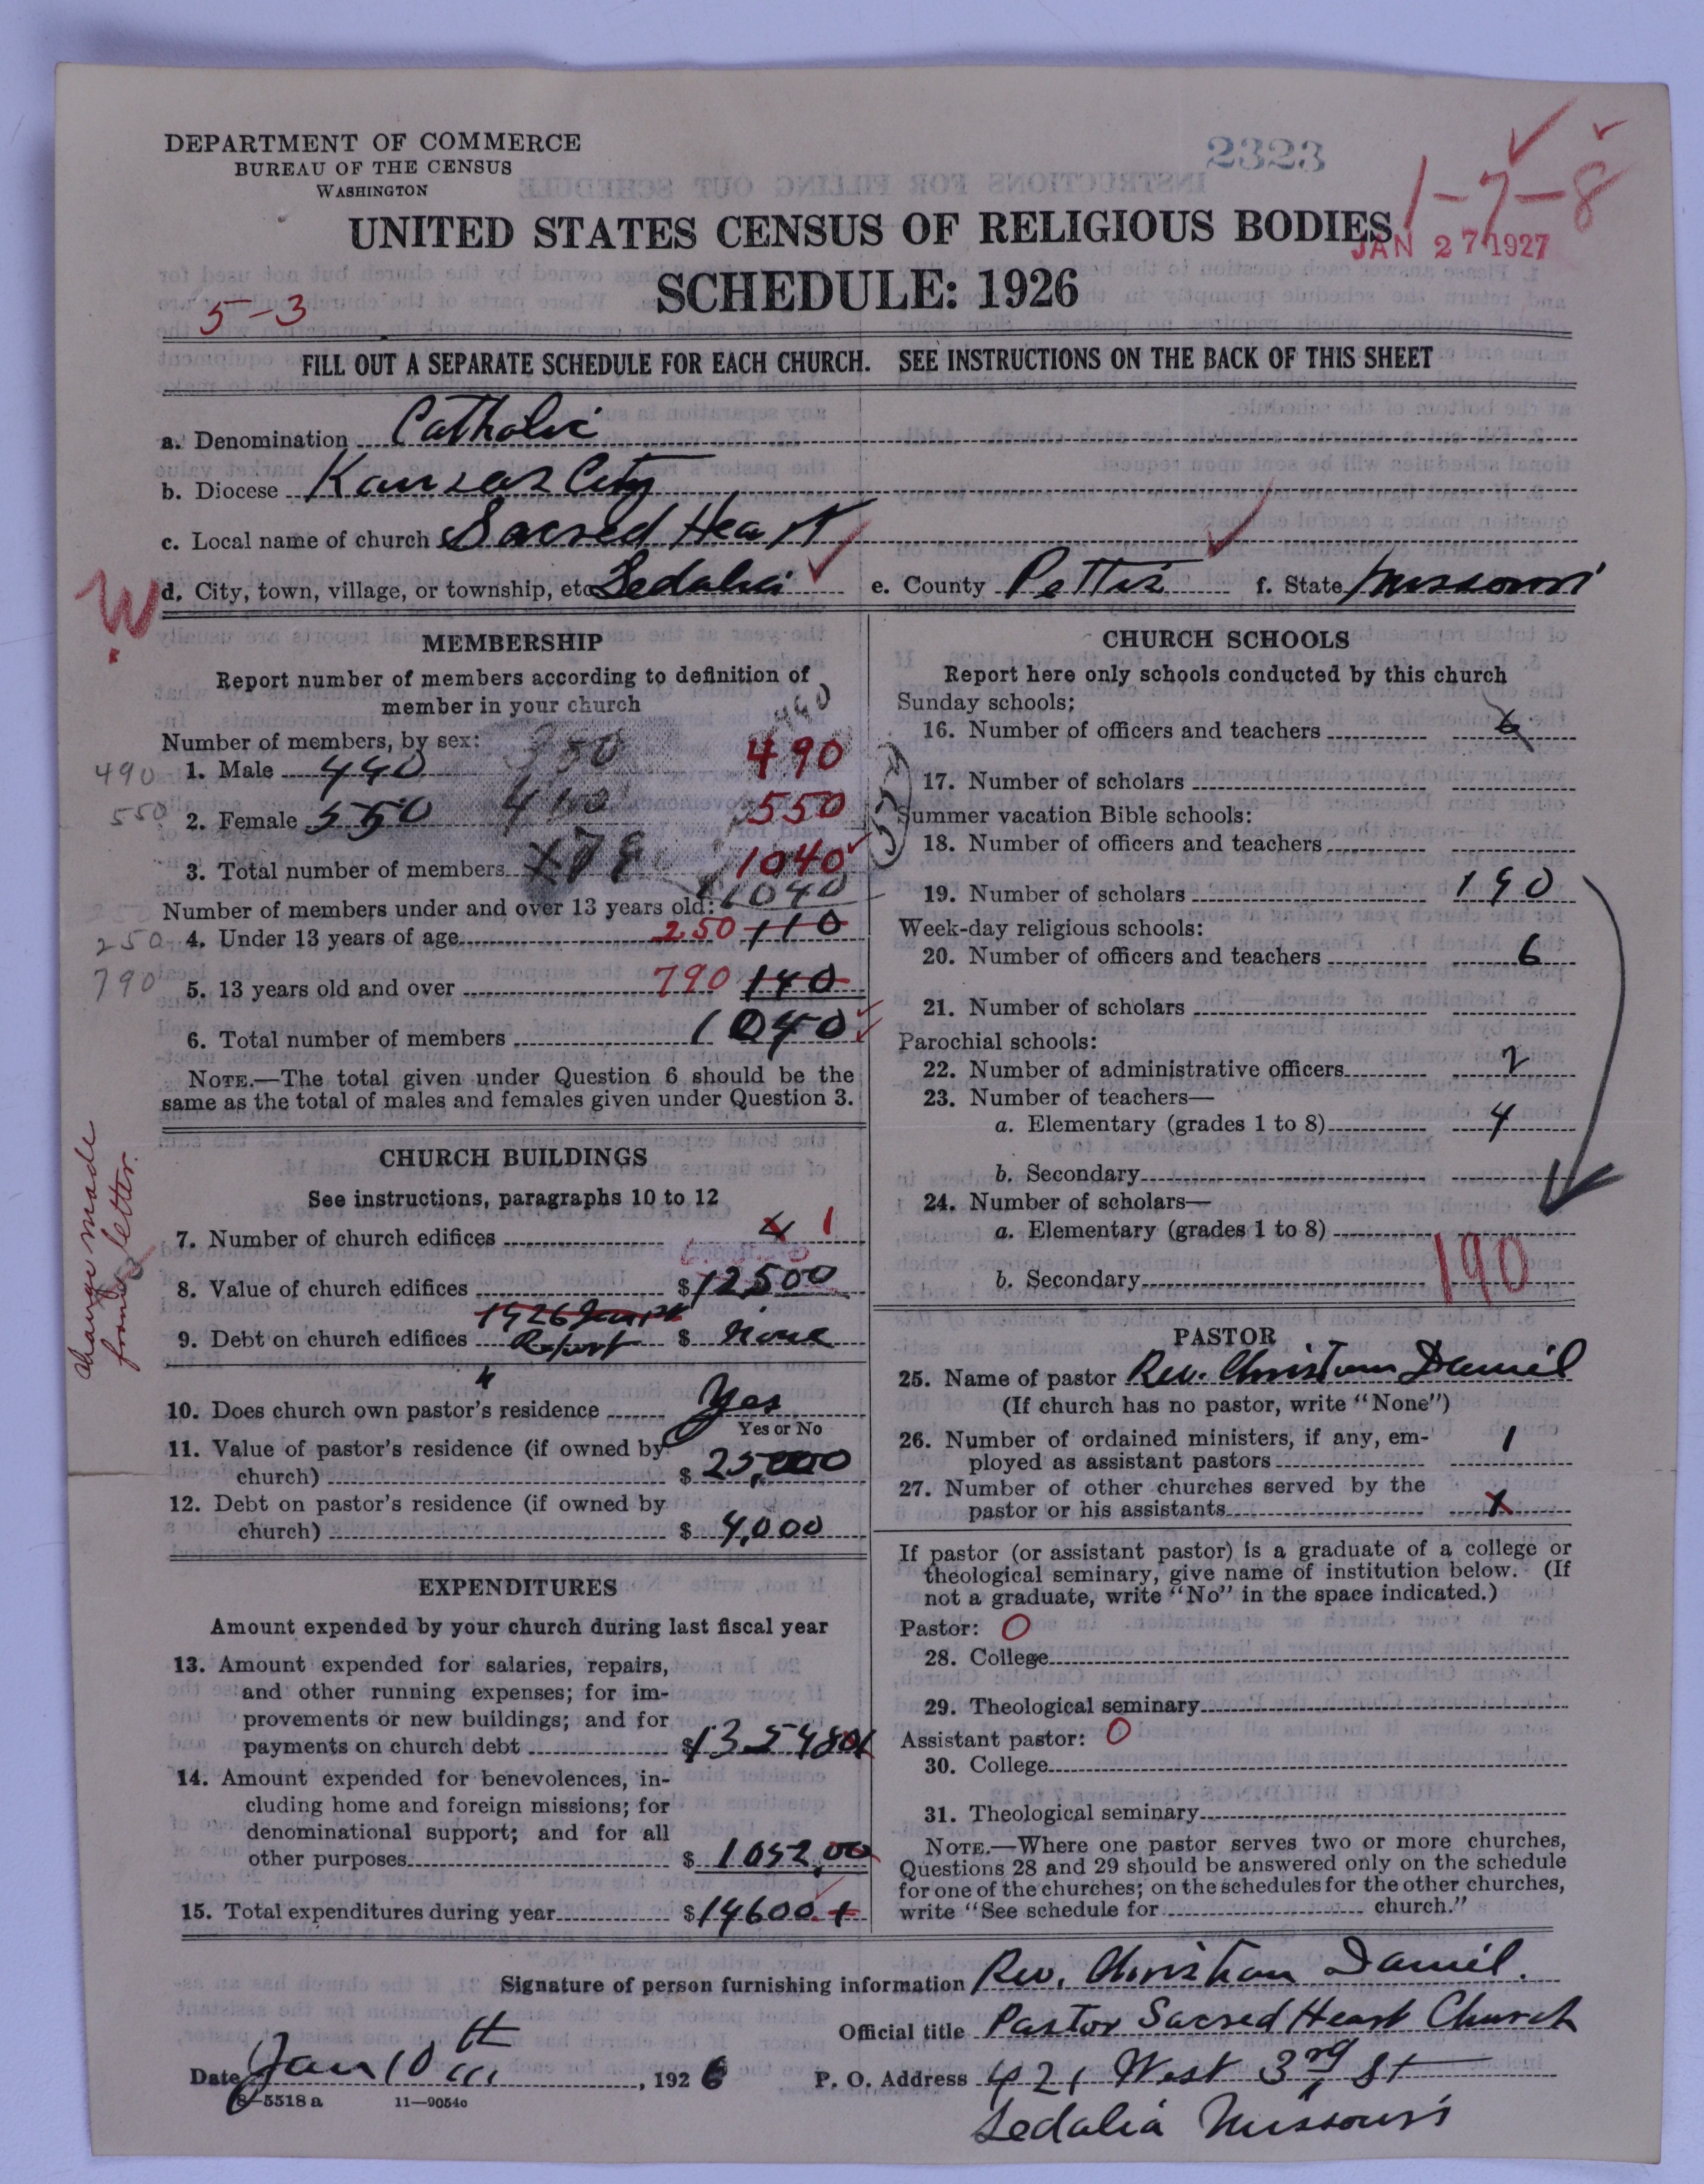 DEPARTMENT OF COMMERCE
BUREAU OF THE CENSUS
WASHINGTON
2323
1-7-8
UNITED STATES CENSUS OF RELIGIOUS BODIES
JAN 27 1927
SCHEDULE: 1926
5-3
FILL OUT A SEPARATE SCHEDULE FOR EACH CHURCH. SEE INSTRUCTIONS ON THE BACK OF THIS SHEET
a. Denomination Catholic
b. Diocese Kansas City
c. Local name of church Sacred Heart
d. City, town, village, or township, etc Sedalia e. County Pettis f. State Missouri
W
MEMBERSHIP
Report number of members according to definition of
member in your church
Number of members, by sex:
490 1. Male 440 350 490
550 2. Female 550 400 550
3. Total number of members 1040
1040
Number of members under and over 13 years old:
250 4. Under 13 years of age 250 110
790 5. 13 years old and over 790 140
6. Total number of members 1040
NOTE.—The total given under Question 6 should be the
same as the total of males and females given under Question 3.
Change made
from letter.
CHURCH BUILDINGS
See instructions, paragraphs 10 to 12
7. Number of church edifices 4 1
8. Value of church edifices $12500
1926
9. Debt on church edifices Report $ None
10. Does church own pastor's residence Yes
Yes or No
11. Value of pastor's residence (if owned by
church) $ 25,000
12. Debt on pastor's residence (if owned by
church) $ 4,000
EXPENDITURES
Amount expended by your church during last fiscal year
13. Amount expended for salaries, repairs,
and other running expenses; for im-
provements or new buildings; and for
payments on church debt $13548
14. Amount expended for benevolences, in-
cluding home and foreign missions; for
denominational support; and for all
other purposes $ 1052,00
15. Total expenditures during year $14600
CHURCH SCHOOLS
Report here only schools conducted by this church
Sunday schools:
16. Number of officers and teachers 6
17. Number of scholars
Summer vacation Bible schools:
18. Number of officers and teachers
19. Number of scholars 190
Week-day religious schools:
20. Number of officers and teachers 6
21. Number of scholars
Parochial schools:
22. Number of administrative officers 2
23. Number of teachers—
a. Elementary (grades 1 to 8) 4
b. Secondary
24. Number of scholars—
a. Elementary (grades 1 to 8) 190
b. Secondary
PASTOR
25. Name of pastor Rev. Christian Daniel
(If church has no pastor, write "None")
26. Number of ordained ministers, if any, em-
ployed as assistant pastors 1
27. Number of other churches served by the
pastor or his assistants x
If pastor (or assistant pastor) is a graduate of a college or
theological seminary, give name of institution below. (If
not a graduate, write "No" in the space indicated.)
Pastor: O
28. College
29. Theological seminary
Assistant pastor: O
30. College
31. Theological seminary
NOTE.—Where one pastor serves two or more churches,
Questions 28 and 29 should be answered only on the schedule
for one of the churches; on the schedules for the other churches,
write "See schedule for church."
Signature of person furnishing information Rev. Christian Daniel.
Official title Pastor Sacred Heart Church
Date Jan 10th, 1926 P. O. Address 421 West 3rd St
8-5518 a 11-9054c
Sedalia Missouri